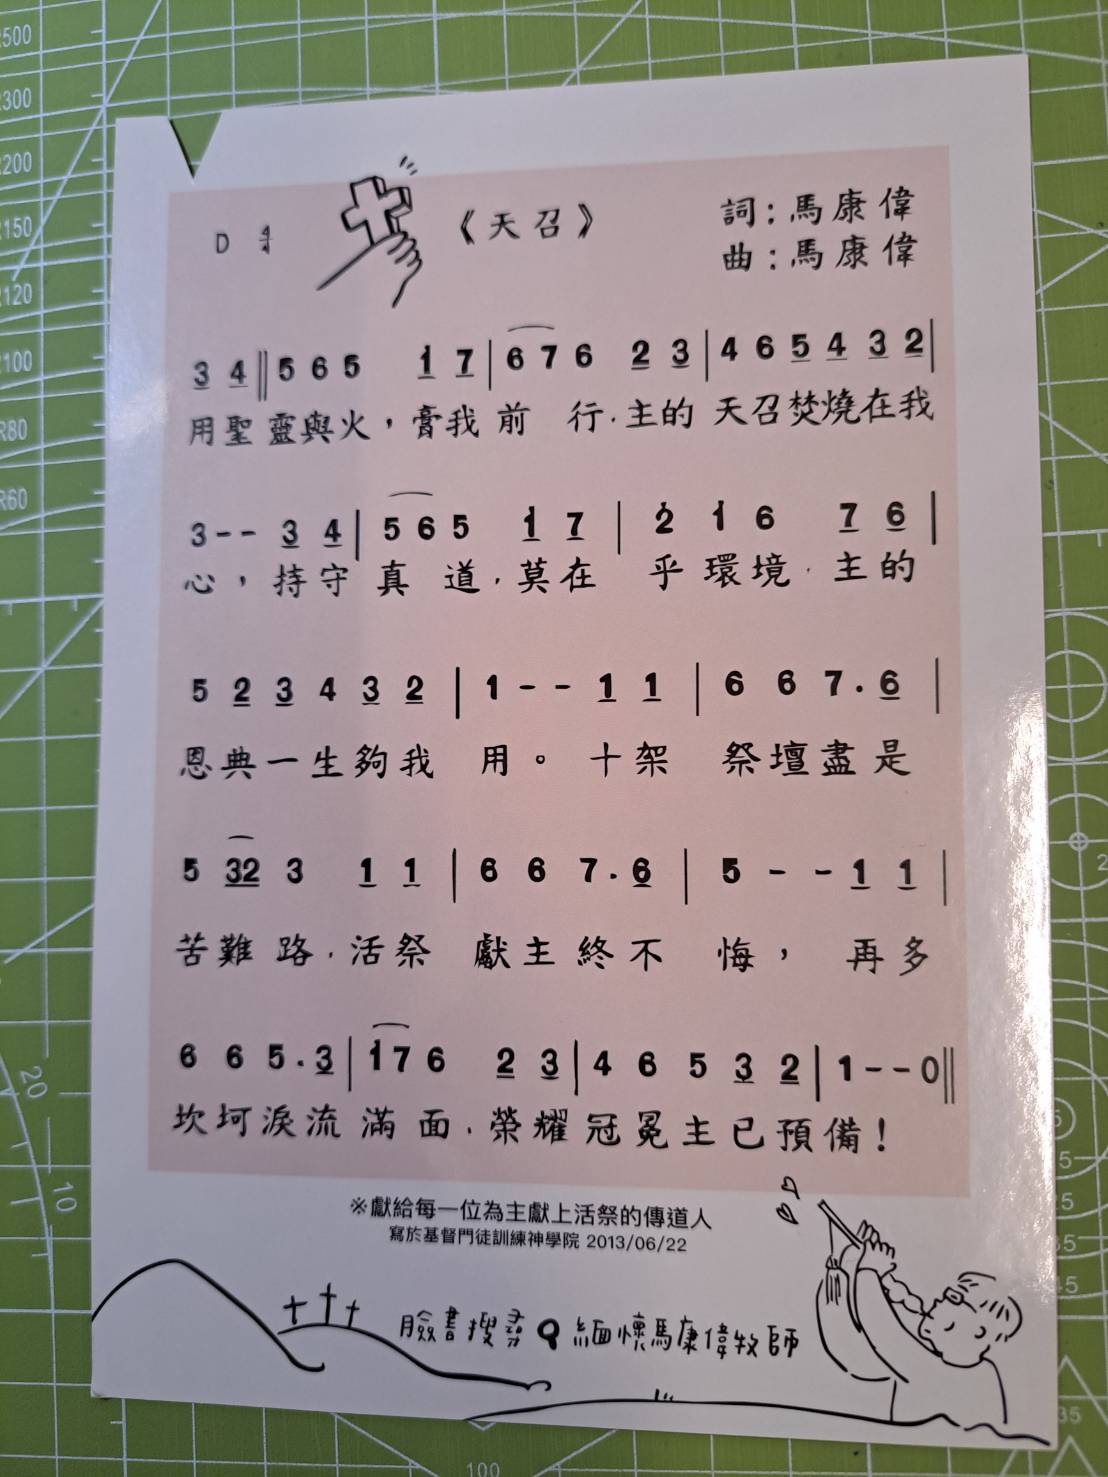 D 4/4 《天召》 詞：馬康偉
曲：馬康偉
3 4 || 5 6 5 1 7 | 6 7 6 2 3 | 4 6 5 4 3 2 |
用聖靈與火，膏我前行．主的天召焚燒在我
3 - - 3 4 | 5 6 5 1 7 | 2 1 6 7 6 |
心，持守真道．莫在乎環境．主的
5 2 3 4 3 2 | 1 - - 1 1 | 6 6 7 . 6 |
恩典一生夠我用。十架祭壇盡是
5 32 3 1 1 | 6 6 7 . 6 | 5 - - 1 1 |
苦難路．活祭獻主終不悔，再多
6 6 5 . 3 | 1 7 6 2 3 | 4 6 5 3 2 | 1 - - 0 ||
坎坷淚流滿面．榮耀冠冕主已預備！
※獻給每一位為主獻上活祭的傳道人
寫於基督門徒訓練神學院 2013/06/22
臉書搜尋 緬懷馬康偉牧師
500
300
200
150
120
R100
R80
R60
20
10
100
2
5
5
35
45
35